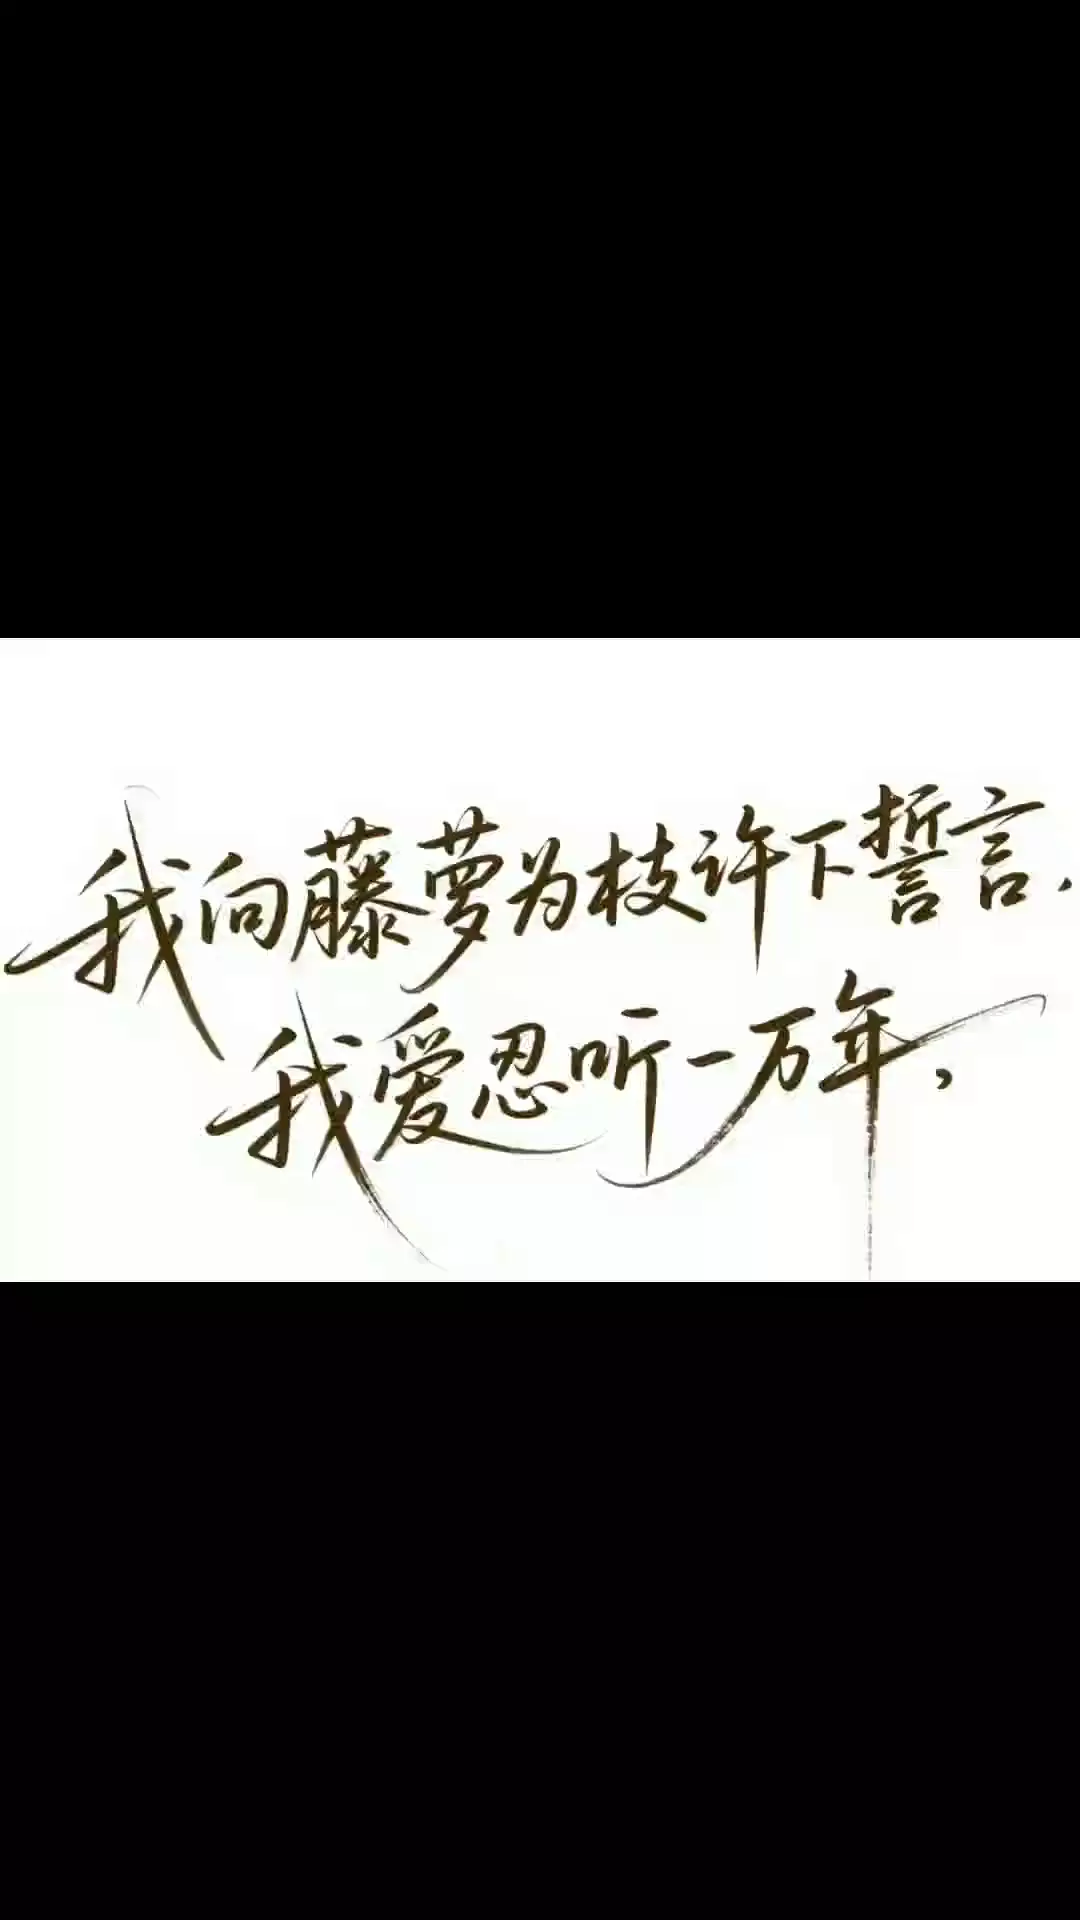 我向藤萝为枝许下誓言，
我爱忍听一万年，